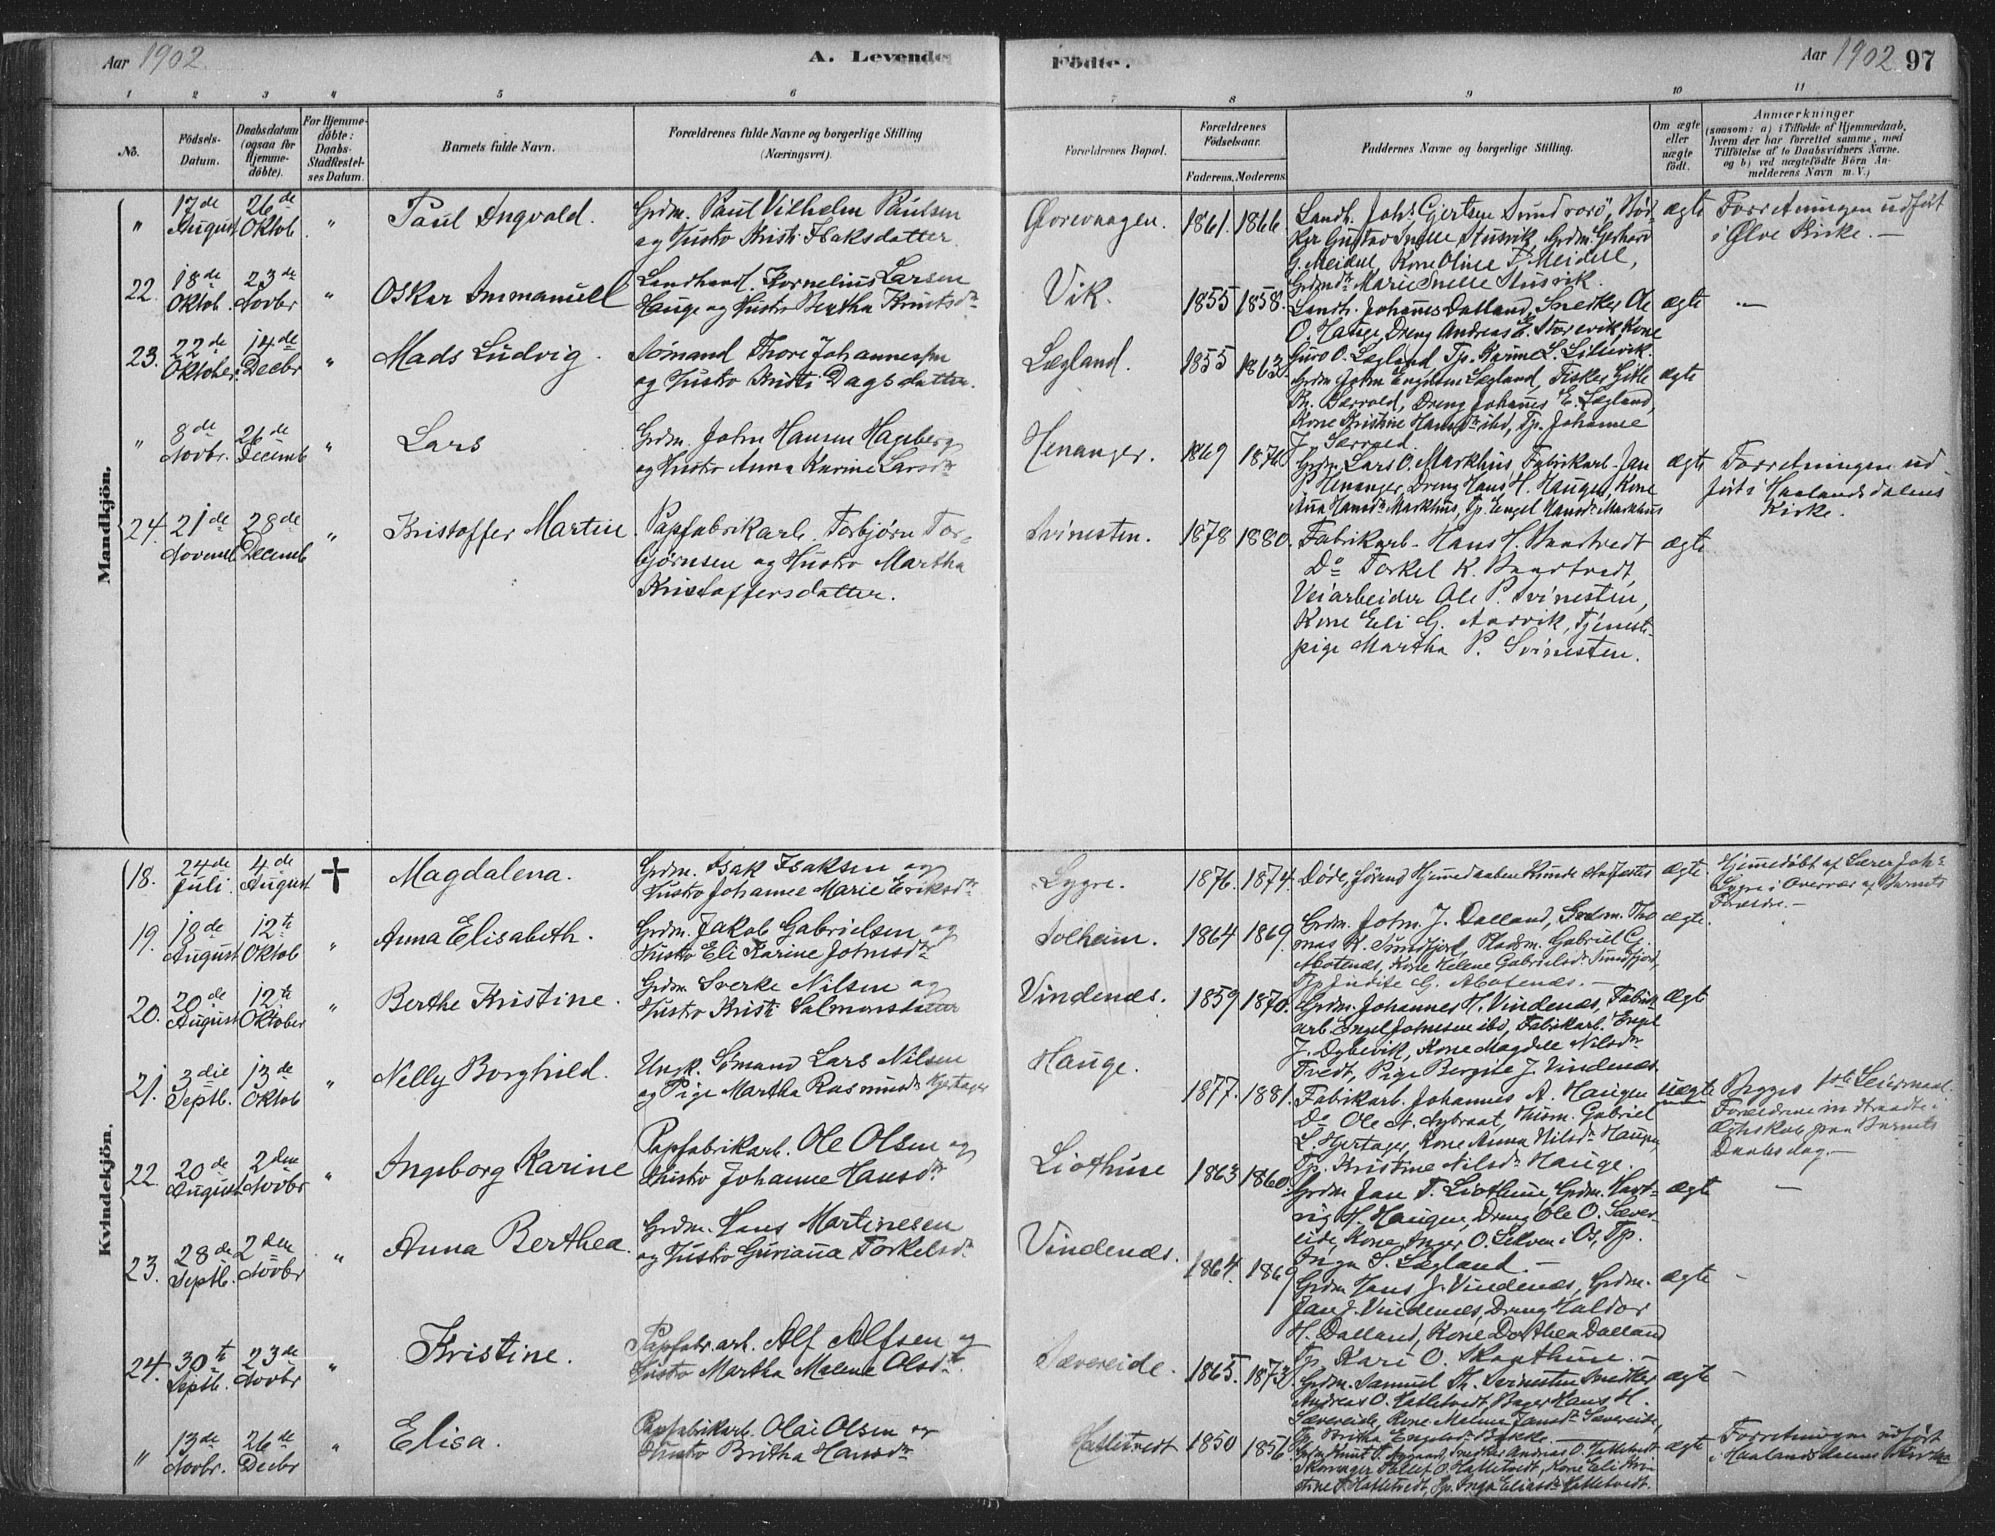 Aar 1902.
A. Levende
Födte.
Aar 1902
97
1 2 3 4 5 6 7 8 9 10 11
No.
Födsels-Datum.
Daabsdatum (ogsaa for Hjemme-döbte).
For Hjemme-döbte: Daabs-Stadfæstel-ses Datum.
Barnets fulde Navn.
Forældrenes fulde Navne og borgerlige Stilling (Næringsvei).
Forældrenes Bopæl.
Forældrenes Födselsaar.
Faderens. Moderens.
Faddernes Navne og borgerlige Stilling.
Om ægte eller uægte födt.
Anmærkninger
(saasom: a) i Tilfælde af Hjemmedaab, hvem der har forrettet samme, med Tilföielse af to Daabsvidners Navne. og b) ved uægtefödte Börn An-melderens Navn m. V.)
Mandkjön.
" 17de August 26de Oktob. " Paul Ingvald.
Grdm. Paul Vilhelm Paulsen
og Hustro Kristi Isaksdatter.
1861. 1866.
Landh. Johs Gjertsen
ægte
Forretningen udført
i Ølve Kirke. —
22. 18de Oktob. 23de Novbr " Oskar Immanuell
Landhandl. Kornelius Larsen
Hauge og Hustro Bertha Knutsdr
Vik.
1855 1858.
Landh. Johannes Dalland, Snekker Ole
O. Hauge, Dreng Andreas E. Storevik, Kone
Guro O. Lægland, Tp. Karine L. Lillevik.
ægte
—
23. 22de Oktober. 14de Decbr " Mads Ludvig.
Sømand Thore Johannessen
og Hustro Kristi Dagsdatter.
Lægland.
1855 1863.
Grdm John Engelsen Lægland, Fisker
Dreng Johannes E. Lægland,
Kone Kristine Hansdr ibid, Tp. Johanne
ægte
" 8de Novbr. 26de Decemb " Lars
Grdm. John Hansen Hageberg
og Hustro Anna Karine Larsdr
Henanger.
1869 1876
Grdm. Lars O. Markhus, Fabrikarb. Jan
P. Henanger, Dreng Hans H. Haugen, Kone
Ana Hansdr Markhus, Tp. Engel Hansdr Markhus
ægte
Forretningen ud-
ført i Haalandsdalens
Kirke.
24. 21de Novemb 28de Decemb " Kristoffer Martin
Papfabrikarb. Torbjørn Tor-
bjørnsen og Hustro Martha
Kristoffersdatter.
Svinesten.
1878 1880.
Fabrikarb. Hans H. Baastvedt
Do Torkel K. Baastvedt,
Veiarbeider Ole P. Svinesten,
Kone Eli G. Aarvik, Tjeneste-
pige Martha P. Svinesten.
ægte
Kvindekjön.
18. 24de Juli. 4de August † Magdalena.
Grdm. Isak Isaksen og
Hustro Johanne Marie Eriksdr
Lygre.
1876. 1874.
Døde, førend Hjemedaaben kunde stadfæstes
ægte
Hjemedøbt af Lærer Johs
Lygre i Overvær af Barnets
Forældre. —
19. 18de August 12te Oktob " Anna Elisabeth.
Grdm. Jakob Gabrielsen og
Hustro Eli Karine Johnsdr
Solheim.
1864 1869.
Grdm. John J. Dalland, Grdm. Tho
mas H. Sundfjord, Pladsm. Gabriel G.
Kone Helene Gabrielsdr Sundfjord,
ægte.
20. 20de August 12te Oktober " Berthe Kristine.
Grdm Sverke Nilsen og
Hustro Kristi Salmonsdatter
Vindenæs.
1859 1870.
Grdm. Johannes H. Vindenæs, Fabrik
arb. Engel Johnsen ibd, Fabrikarb. Engel
J. Dybevik, Kone Magdele Nilsdr
Tvedt, Pige Bergite J. Vindenæs.
ægte
21. 3die Septb. 13de Oktob " Nelly Borghild.
Ungk. Sømand Lars Nilsen
og Pige Martha Rasmusdr Hjertager
Hauge.
1877. 1881.
Fabrikarb. Johannes A. Haugen
Do Ole N. Nybraat, Husm. Gabriel
L. Hjertager, Kone Anna Nilsdr Haugen,
Tp. Kristine Nilsdr Hauge.
uægte
Begges 1ste Leiermaal.
Forældrene indtraadte i
Ægteskab paa Barnets
Daabsdag. —
22. 20de August 2den Novbr " Ingeborg Karine
Papfabrikarb. Ole Olsen og
Hustro Johanne Hansdr
Liothune
1863 1860.
Grdm Jan T. Liothune, Grdm. Hart-
vig H. Haugen, Dreng Ole O. Sæver-
eide, Kone Inger O. Lekven i Os, Tp.
Inga S. Lægland. —
ægte
—
23. 28de Septb. 2den Novbr " Anna Berthea.
Grdm. Hans Martinesen
og Hustro Guriana Torkelsdr
Vindenæs.
1864. 1869
Grdm Hans J. Vindenæs, Grdm.
Jan J. Vindenæs, Dreng Haldor
H. Dalland, Kone Dorthea Dalland
Tp. Kari O. Skaathun. —
ægte
—
24. 30te Septb. 23de Novbr " Kristine.
Papfabr.arb. Alf Alfsen og
Hustro Martha Malene Olsdr
Sævereide.
1865. 1873.
Grdm. Samuel Th. Svinesten Snedker
Andreas O. Hatletvedt, Bager Hans H.
Sævereide, Kone Malene Jansdr Sævereide,
Tp. Britha Engelsdr Bakke. —
ægte
—
" 13de Novbr. 26de Decbr " Elisa.
Papfabrikarb. Olai Olsen og
Hustro Britha Hansdr
Hatletvedt
1850 1856.
Snedker Andreas O. Hatletvedt
Skomager Tollef O. Hatletvedt, Kone Eli Kri-
stine T. Hatletvedt, Tp. Inga Eliasdr Hatletvedt.
ægte
Forretningen udført
i Haalandsdalens Kirke